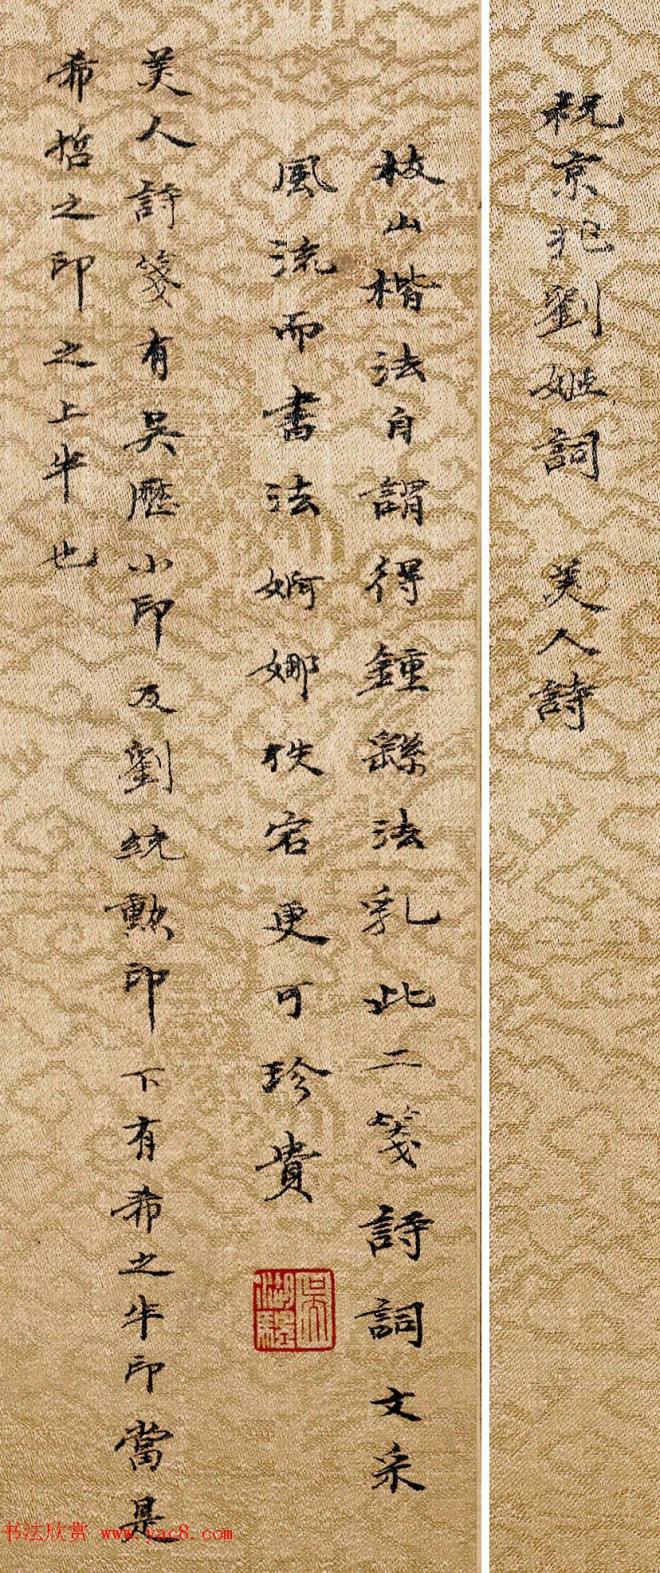 祝京兆劉姬詞　美人詩
枝山楷法自謂得鍾繇法乳此二箋詩詞文采
風流而書法婀娜佚宕更可珍貴
吳湖帆
美人詩箋有吳歷小印及劉統勳印下有希之半印當是
希哲之印之上半也
书法欣赏 www.yac8.com